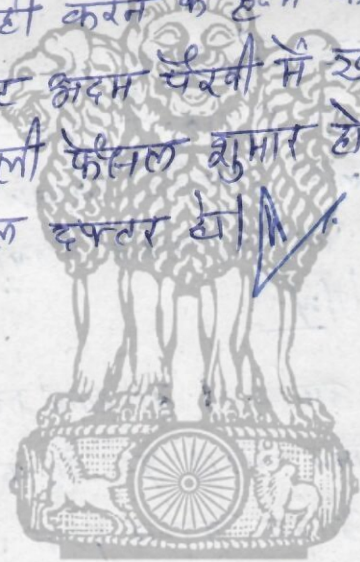 ही करने के
अदम पैरवी में
फैसल शुमार हो
दफ्तर हो।